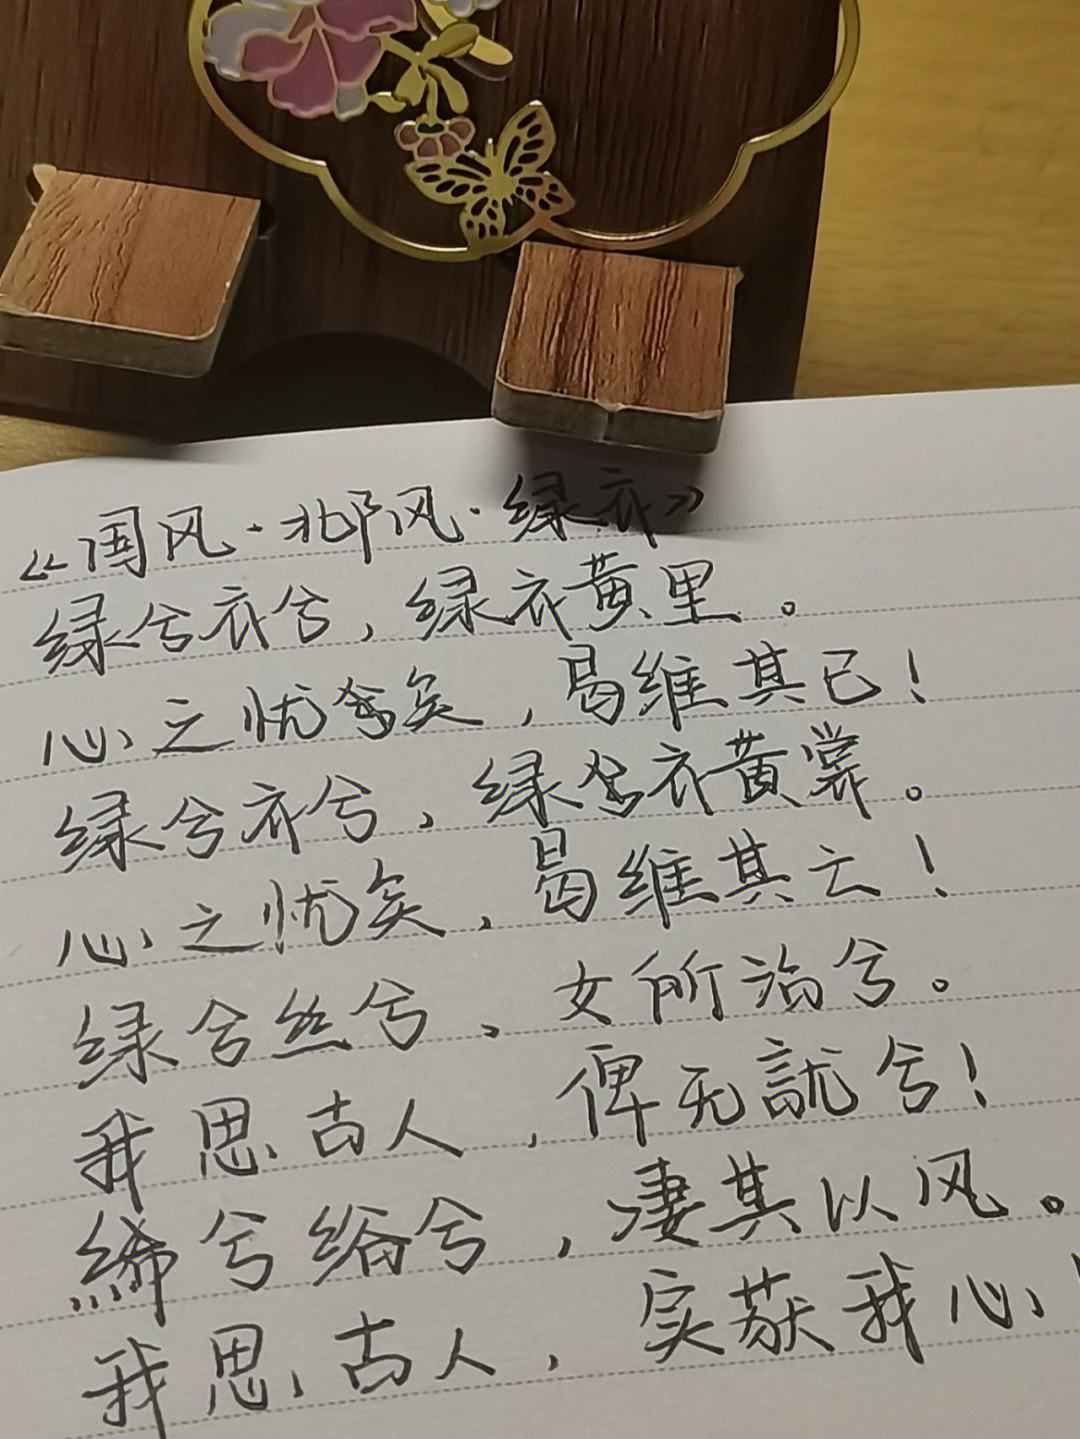 《国风·邶风·绿衣》
绿兮衣兮,绿衣黄里。
心之忧矣,曷维其已!
绿兮衣兮,绿衣黄裳。
心之忧矣,曷维其亡!
绿兮丝兮,女所治兮。
我思古人,俾无訧兮!
絺兮绤兮,凄其以风。
我思古人,实获我心!